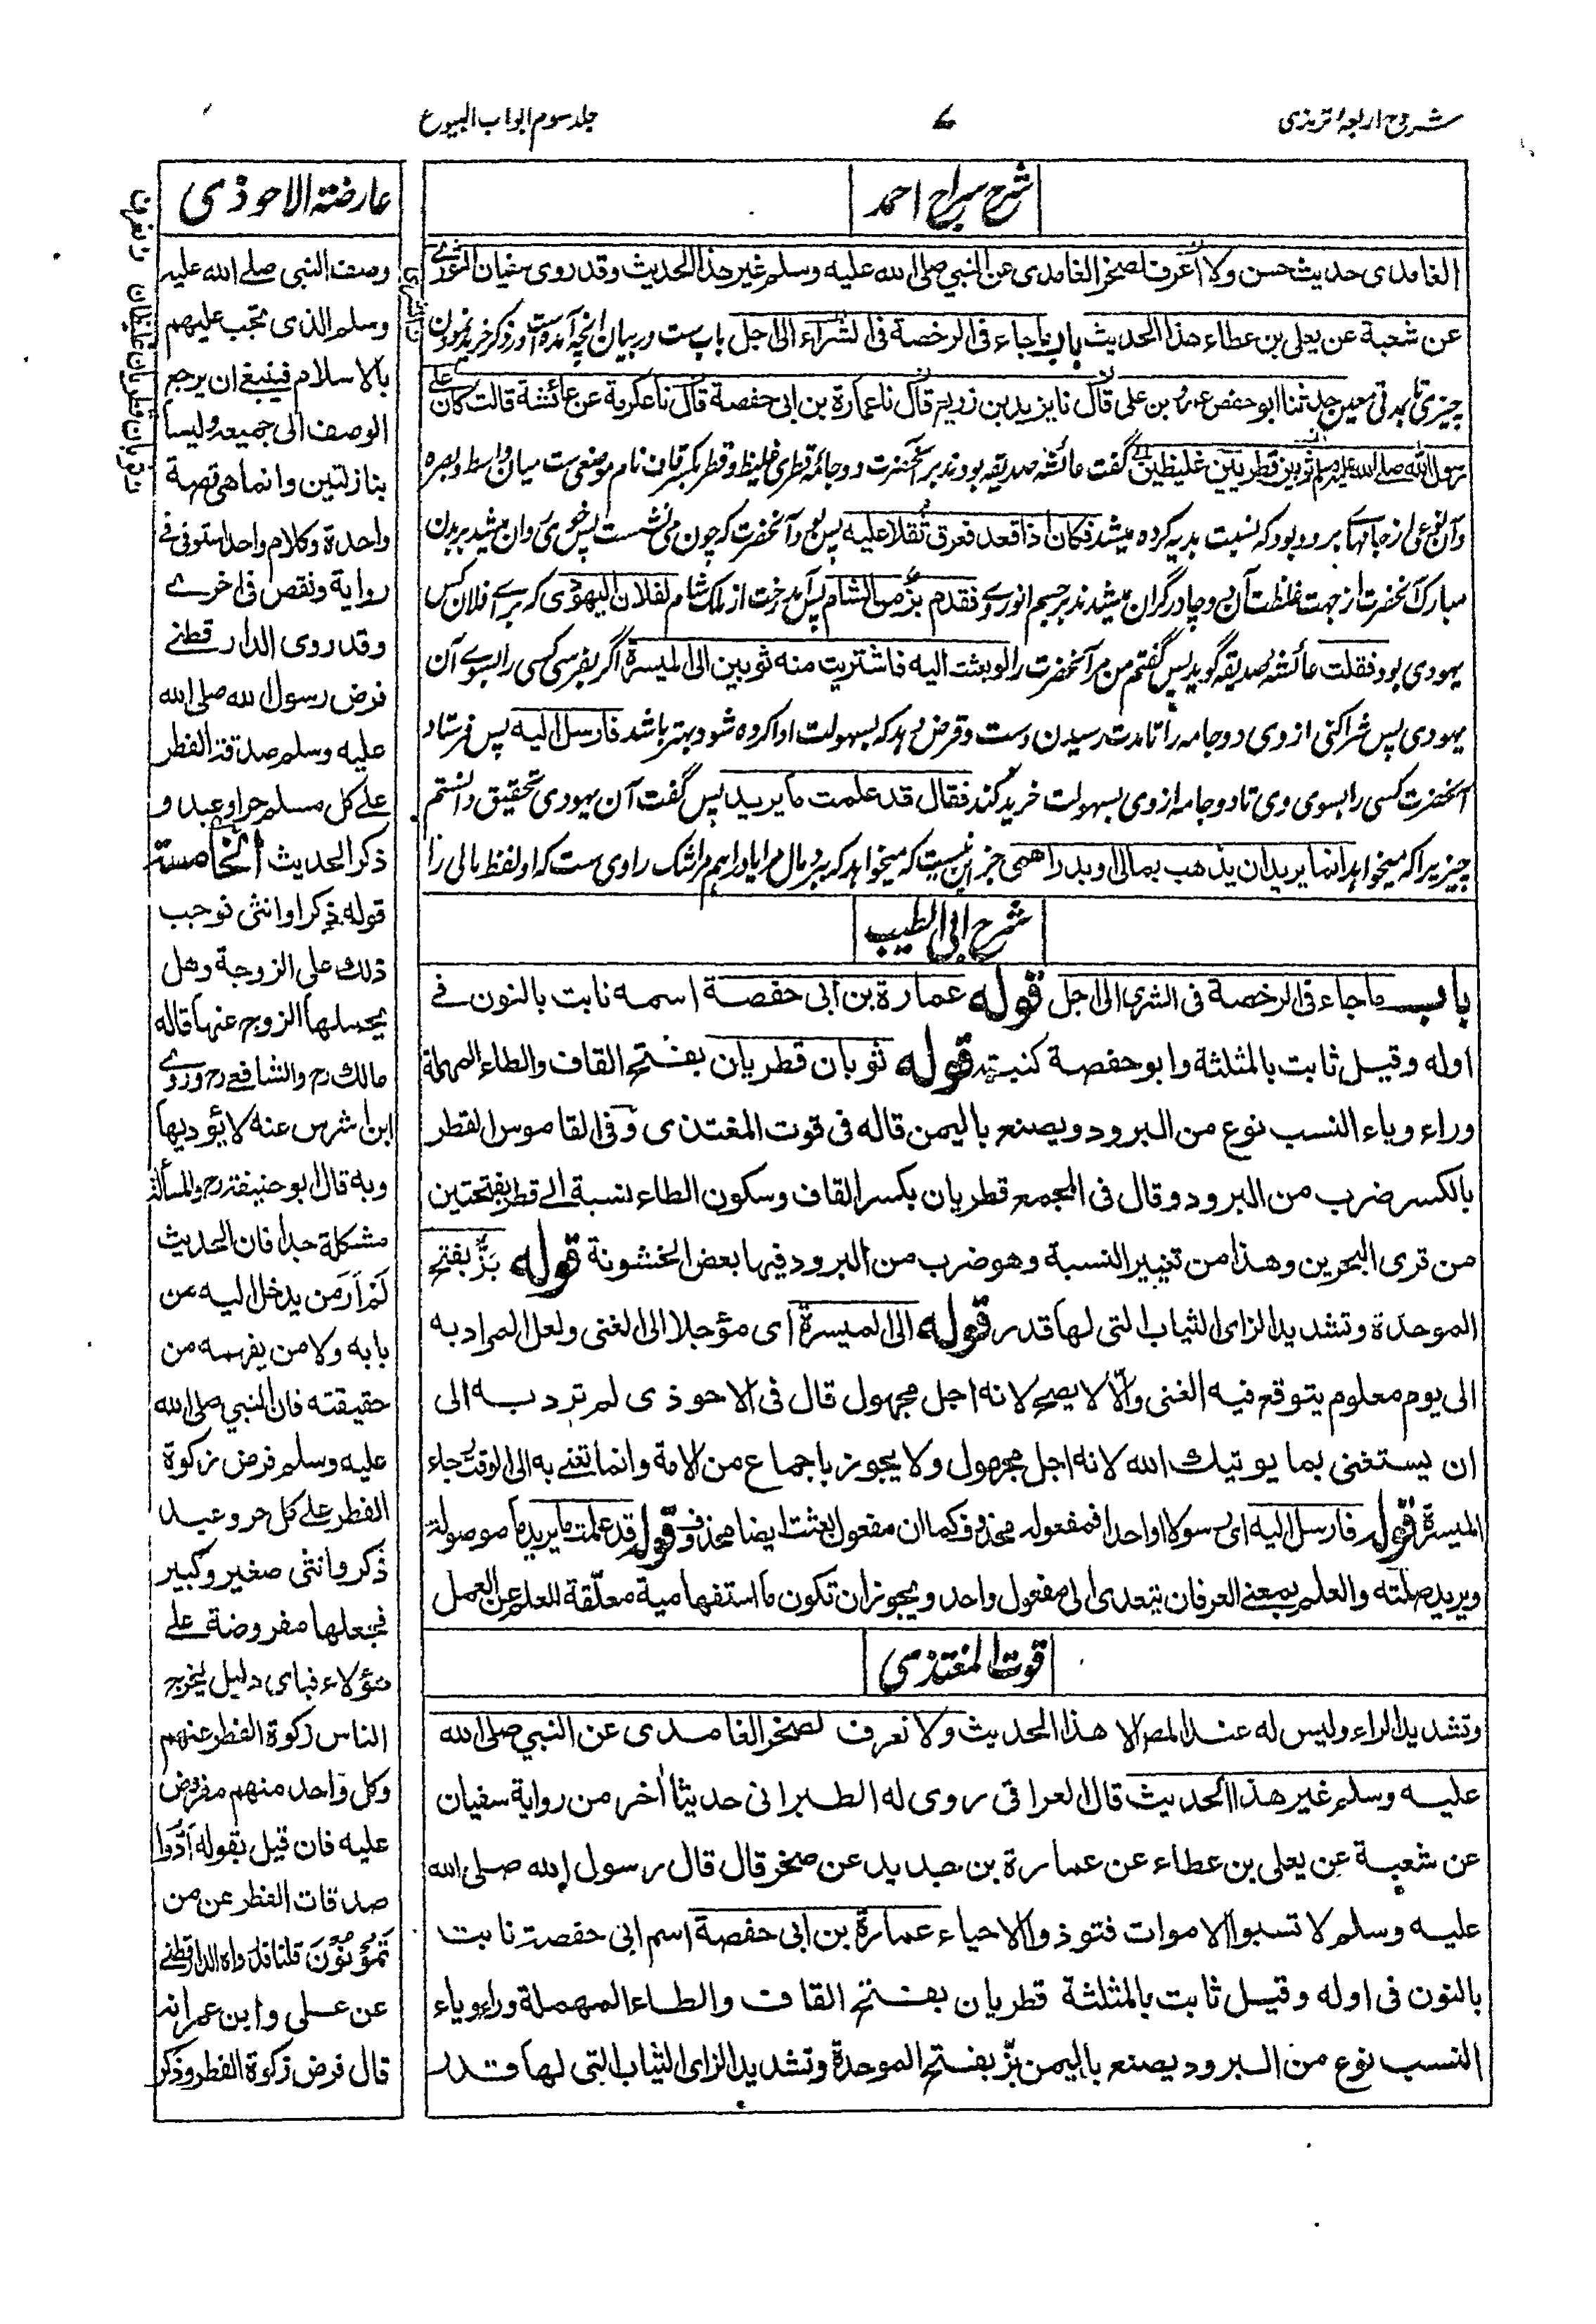 شروح اربعهٔ ترمذی
۷
جلد سوم ابواب البیوع
شرح سراج احمد
الغامدی حدیث حسن ولا اعرف لصخر الغامدی عن النبی صلی الله علیه وسلم غیر هذا الحدیث وقد روی سفیان الثوری
عن شعبة عن یعلی بن عطاء هذا الحدیث باب ماجاء فی الرخصة فی الشراء الی اجل باب ست در بیان انچه آمده است در ذکر خرید نمودن
چیزی تا مدتی معین حدثنا ابو حفص عمرو بن علی قال نا یزید بن زریع قال نا عمارة بن ابی حفصة قال نا عکرمة عن عائشة قالت کان علی
رسول الله صلی الله علیه وسلم ثوبین قطریین غلیظین گفت عائشه صدیقه بودند بر آنحضرت دو جامهٔ قطری غلیظ و قطر بکسر قاف نام موضعی ست میان واسط و بصره
وآن نوعی از جامها برود بود که نسبت بدیه کرده میشد فکان اذا قعد فعرق ثقلا علیه پس بود آنحضرت که چون می نشست پس خوی روان میشد بر بدن
مبارک آنحضرت از جهت غلظت آن دو چادر گران میشدند بر جسم انور وی فقدم بز من الشام پس آمد رخت از ملک شام لفلان الیهودی که برای فلان کس
یهودی بود فقلت عائشه صدیقه گوید پس گفتم من مر آنحضرت را لو بعثت الیه فاشتریت منه ثوبین الی المیسرة اگر بفرستی کسی را بسوی آن
یهودی پس شراکنی از وی دو جامه را تا مدت رسیدن دست و قرض بهد که بسهولت ادا کرده شود بهتر باشد فارسل الیه پس فرستاد
آنحضرت کسی را بسوی وی تا دو جامه از وی بسهولت خرید کند فقال قد علمت ما یرید پس گفت آن یهودی تحقیق دانستم
چیزیرا که میخواهد انما یرید ان یذهب بمالی او بدراهمی جز این نیست که میخواهد که ببرد مال مرا یا دراهم مرا شک راوی ست که او لفظ مالی را
شرح ابی الطیب
باب ماجاء فی الرخصة فی الشری الی اجل قوله عمارة بن ابی حفصة اسمه نابت بالنون فی
اوله وقیل ثابت بالمثلثة وابو حفصة کنیته قوله ثوبان قطریان بفتح القاف والطاء المهملة
وراء ویاء النسب نوع من البرود ویصنع بالیمن قاله فی قوت المغتذی وفی القاموس القطر
بالکسر ضرب من البرود وقال فی المجمع قطریان بکسر القاف وسکون الطاء نسبة الی قطر بفتحتین
من قری البحرین وهذا من تغییر النسبة وهو ضرب من البرود فیها بعض الخشونة قوله بَزٌّ بفتح
الموحدة وتشدید الزای الثیاب التی لها قدر قوله الی المیسرة ای مؤجلا الی الغنی ولعل المراد به
الی یوم معلوم یتوقع فیه الغنی والّا لا یصح لانه اجل مجهول قال فی الاحوذی لم ترد به الی
ان یستغنی بما یوتیک الله لانه اجل مجهول ولا یجوز باجماع من الامة وانما تعنی به الی الوقت جاء
المیسرة قوله فارسل الیه ای رسولا او احدا فمفعوله محذوف کما ان مفعول بعثت ایضا محذوف قوله قد علمت ما یرید ما موصولة
ویرید صلته والعلم بمعنی العرفان یتعدی الی مفعول واحد ویجوز ان تکون ما استفهامیة معلّقة للعلم عن العمل
قوت المغتذی
وتشدید الراء ولیس له عند المصر الا هذا الحدیث ولا نعرف لصخر الغامدی عن النبی صلی الله
علیه وسلم غیر هذا الحدیث قال العراقی روی له الطبرانی حدیثا اخر من روایة سفیان
عن شعبة عن یعلی بن عطاء عن عمارة بن حدید عن صخر قال قال رسول الله صلی الله
علیه وسلم لا تسبوا الاموات فتوذوا الاحیاء عمارة بن ابی حفصة اسم ابی حفصة نابت
بالنون فی اوله وقیل ثابت بالمثلثة قطریان بفتح القاف والطاء المهملة وراء ویاء
النسب نوع من البرود یصنع بالیمن بزّ بفتح الموحدة وتشدید الزای الثیاب التی لها قدر
عارضة الاحوذی
وصف النبی صلی الله علیه
وسلم الذی تجب علیهم
بالاسلام فینبغی ان یرجع
الوصف الی جمیعه ولیسا
بنازلتین وانما هی قصة
واحدة وکلام واحد استوفی فی
روایة ونقص فی اخری
وقد روی الدارقطنی
فرض رسول الله صلی الله
علیه وسلم صدقة الفطر
علی کل مسلم حر او عبد و
ذکر الحدیث الخامسة
قوله ذکر او انثی توجب
ذلک علی الزوجة وهل
یحملها الزوج عنها قاله
مالک رح والشافعی رح وروی
ابن اشرس عنه لا یؤدیها
وبه قال ابو حنیفة رح والمسألة
مشکلة جدا فان الحدیث
لَمْ اَرَ من یدخل الیه من
بابه ولا من یفهمه من
حقیقته فان النبی صلی الله
علیه وسلم فرض زکوة
الفطر علی کل حر وعبد
ذکر وانثی صغیر وکبیر
فجعلها مفروضة علی
هؤلاء فبای دلیل یخرج
الناس زکوة الفطر عنهم
وکل واحد منهم مفروض
علیه فان قیل بقوله اَدُّوا
صدقات الفطر عن من
تَمُوْنُوْنَ قلنا قد رواه الدارقطنی
عن علی وابن عمر انه
قال فرض زکوة الفطر وذکر